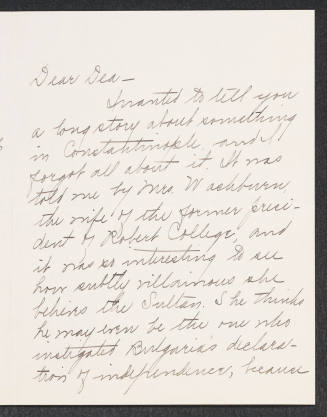 Dear Dea—
I wanted to tell you
a long story about something
in Constantinople, and I
forgot all about it. It was
told me by Mrs. Washburn,
the wife of the former presi-
dent of Robert College, and
it was so interesting to see
how subtly villainous she
believes the Sultan. She thinks
he may even be the one who
instigated Bulgaria's declara-
tion of independence, because